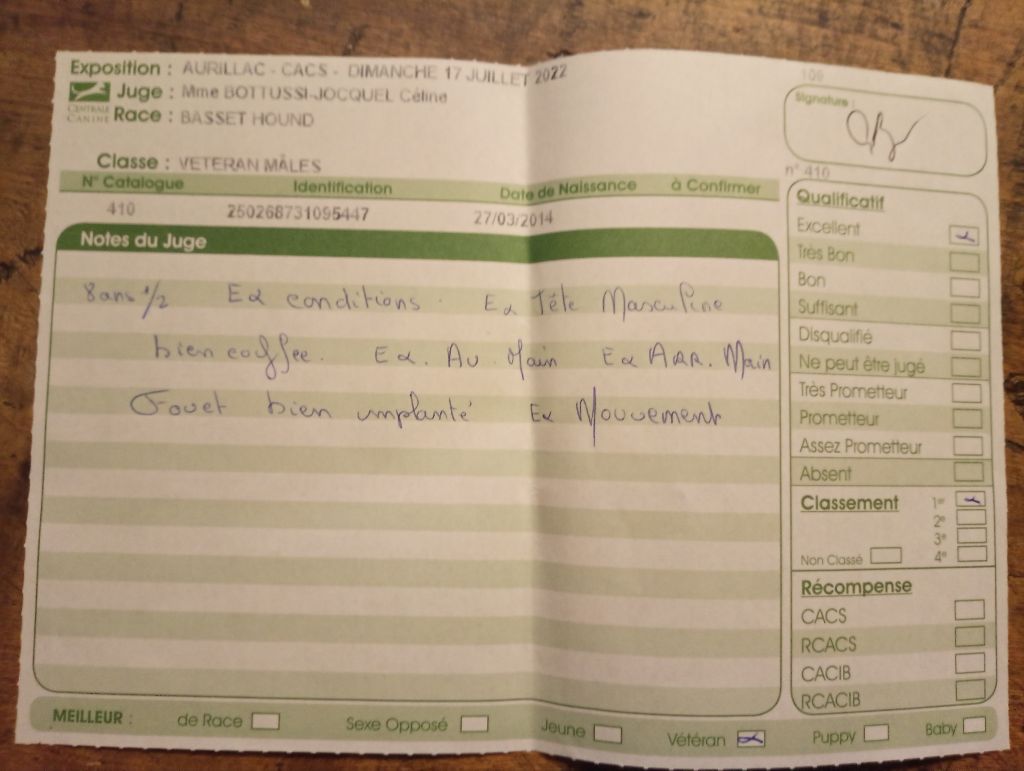 Exposition : AURILLAC - CACS - DIMANCHE 17 JUILLET 2022
109
Juge : Mme BOTTUSSI-JOCQUEL Céline
Signature :
CENTRALE
CANINE
Race : BASSET HOUND
Classe : VETERAN MÂLES
n° 410
N° Catalogue Identification Date de Naissance à Confirmer
410 250268731095447 27/03/2014
Notes du Juge
8 ans 1/2 Ex conditions. Ex Tête Masculine
bien coiffée. Ex. Av. Main Ex ARR. Main
Fouet bien implanté Ex Mouvement
Qualificatif
Excellent
Très Bon
Bon
Suffisant
Disqualifié
Ne peut être jugé
Très Prometteur
Prometteur
Assez Prometteur
Absent
Classement 1er
2e
3e
Non Classé 4e
Récompense
CACS
RCACS
CACIB
RCACIB
MEILLEUR : de Race Sexe Opposé Jeune Vétéran Puppy Baby